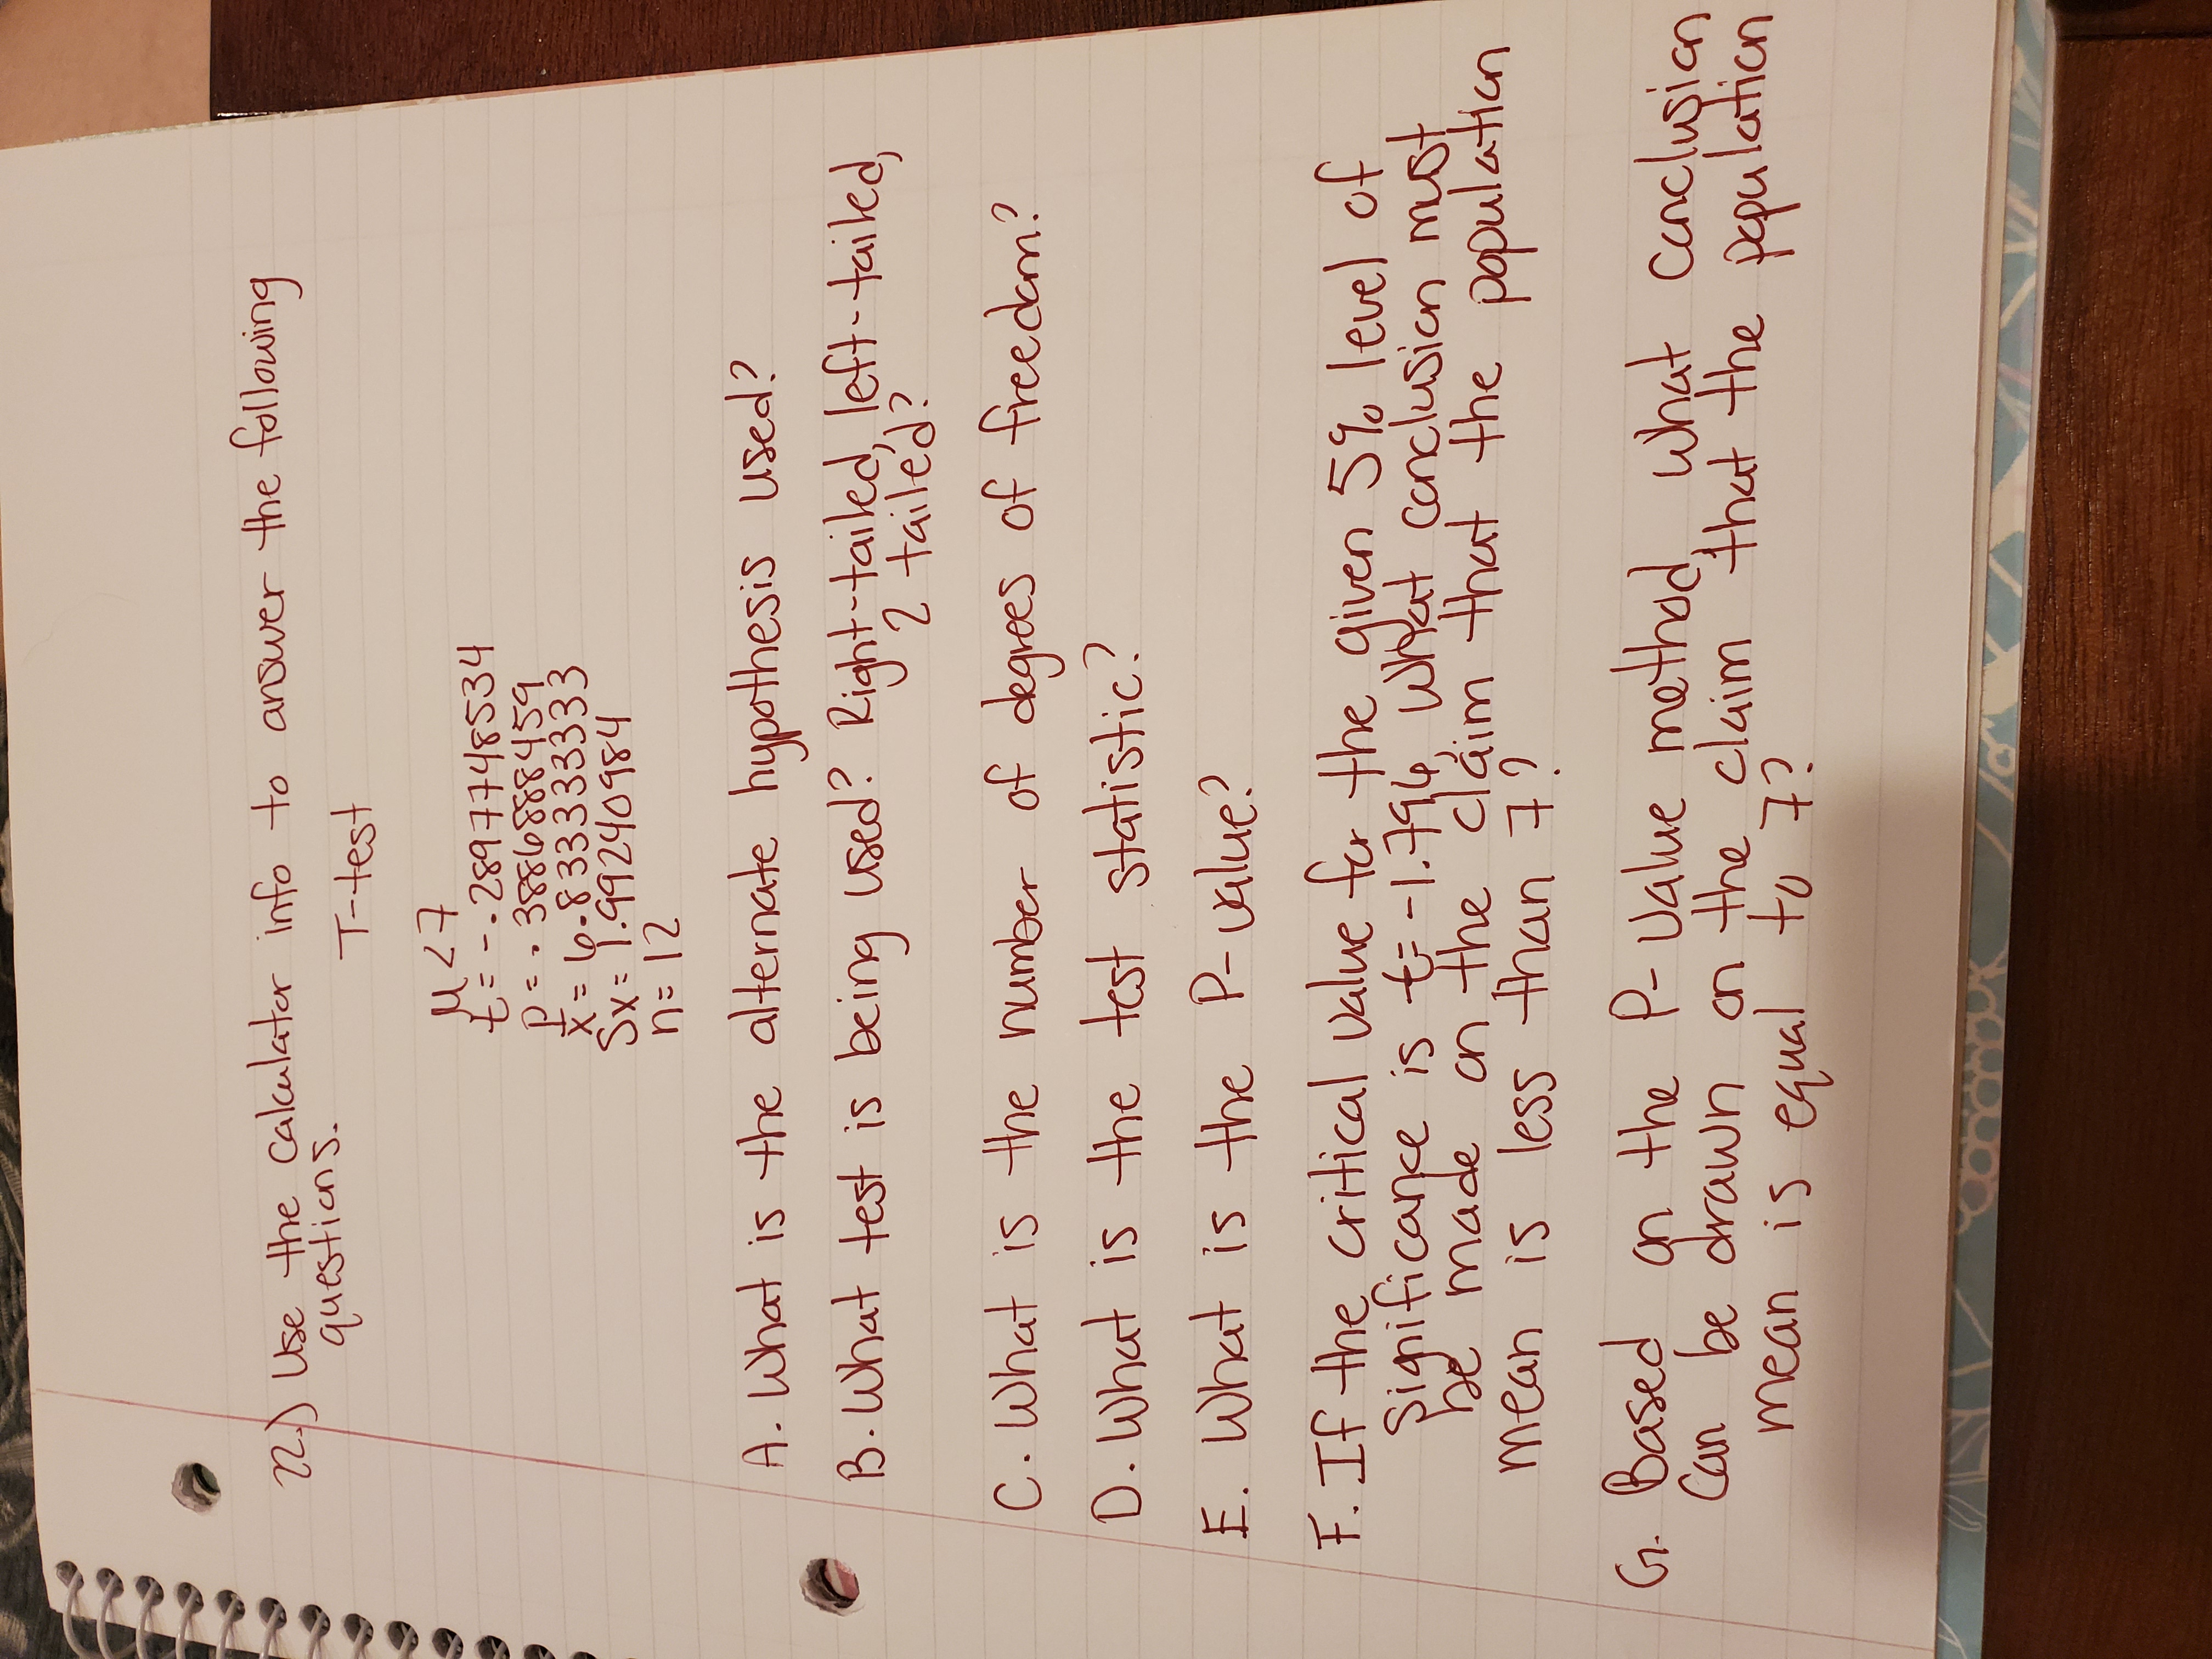 22.) Use the calculator info to answer the following
questions.
T-test
μ<7
t=-.2897748534
p=.3886888459
x=6.833333333
Sx=1.99240984
n=12
A. What is the alternate hypothesis used?
B. What test is being used? Right-tailed, left-tailed,
2 tailed?
C. What is the number of degrees of freedom?
D. What is the test statistic?
E. What is the P-value?
F. If the critical value for the given 5% level of
significance is t=-1.796, what conclusion must
be made on the claim that the population
mean is less than 7?
G. Based on the P-value method, what conclusion
can be drawn on the claim that the population
mean is equal to 7?